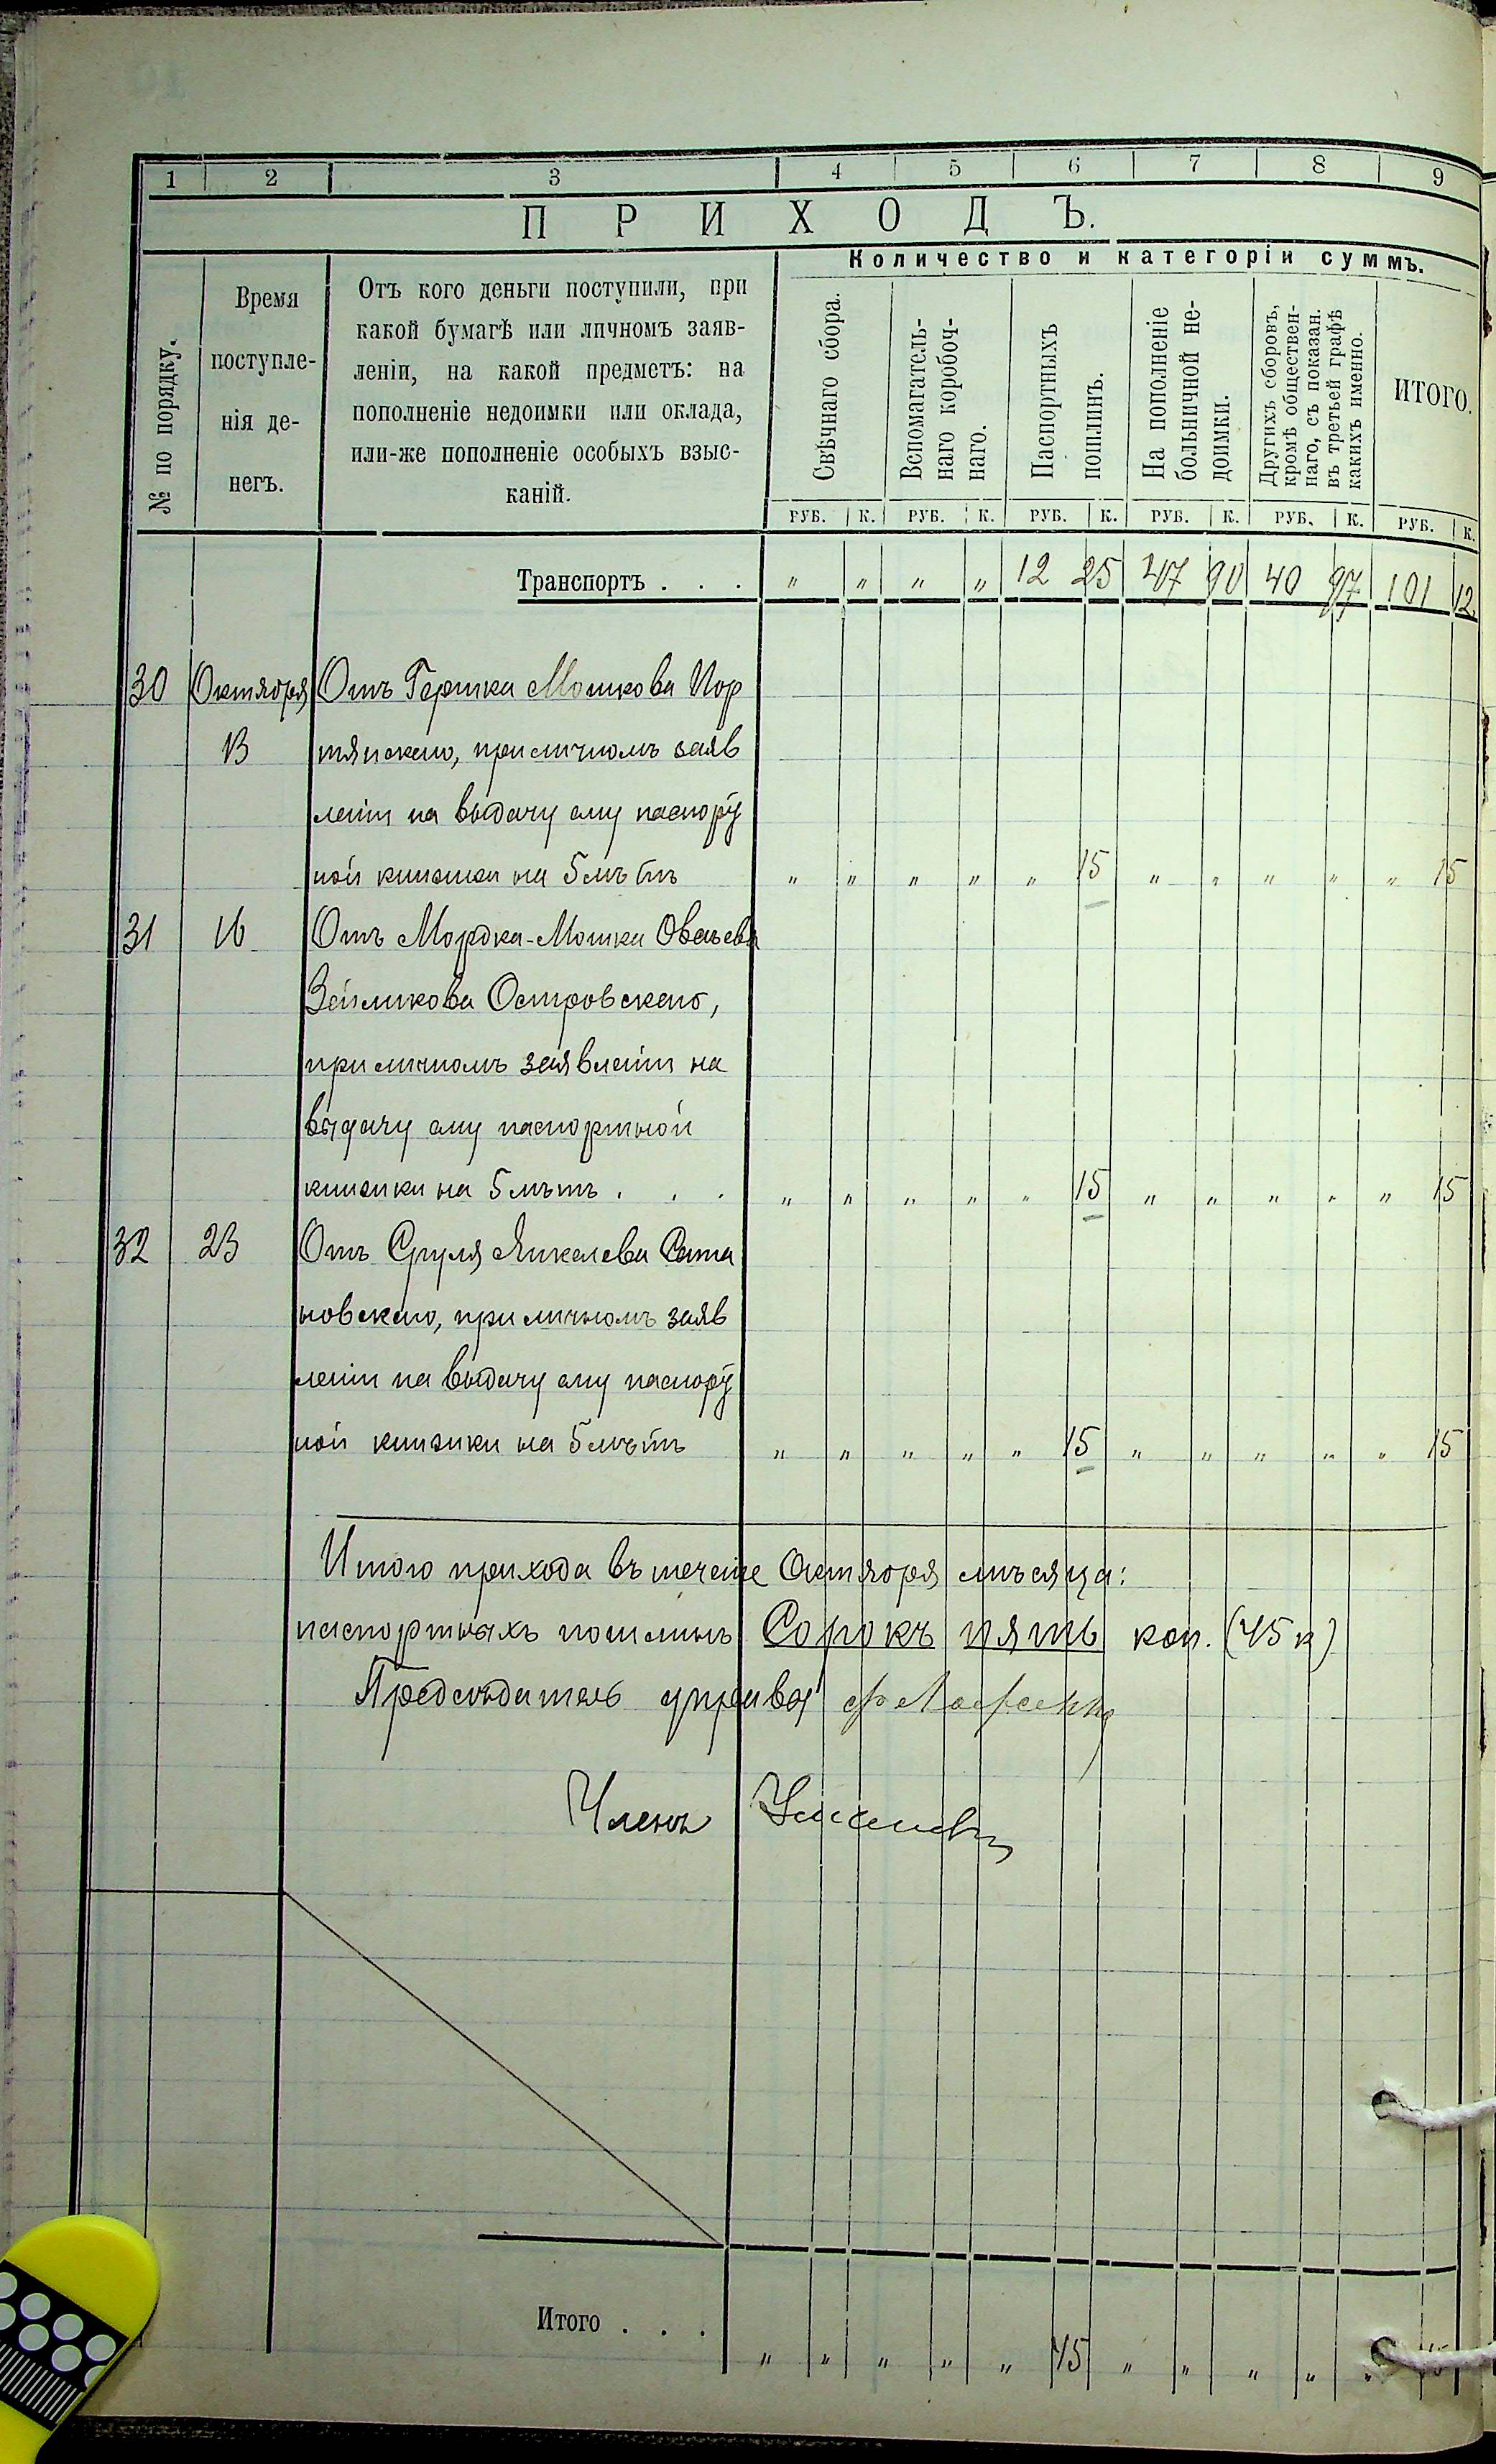 1 2 3 4 5 6 7 8 9
ПРИХОДЪ.
Количество и категоріи суммъ.
№ по порядку.
Время
поступле-
нія де-
негъ.
Отъ кого деньги поступили, при
какой бумагѣ или личномъ заяв-
леніи, на какой предметъ: на
пополненіе недоимки или оклада,
или-же пополненіе особыхъ взыс-
каній.
Свѣчнаго сбора.
Вспомагатель-
наго коробоч-
наго.
Паспортныхъ
пошлинъ.
На пополненіе
больничной не-
доимки.
Другихъ сборовъ,
кромѣ обществен-
наго, съ показан.
въ третьей графѣ
какихъ именно.
ИТОГО.
РУБ. К. РУБ. К. РУБ. К. РУБ. К. РУБ. К. РУБ. К.
Транспортъ . . . " " " " 12 25 47 90 40 97 101 12
30 Октября Отъ Гершка Мошкова Пор
13 тянскаго, при личномъ заяв
леніи на выдачу ему паспорт
ной книжки на 5 лѣтъ " " " " " 15 " " " " " 15
31 16 Отъ Мордка-Мошка
Зейликова Островскаго,
при личномъ заявленіи на
выдачу ему паспортной
книжки на 5 лѣтъ . . . " " " " " 15 " " " " " 15
32 23 Отъ Сруля Янкелева Сата
новскаго, при личномъ заяв
леніи на выдачу ему паспорт
ной книжки на 5 лѣтъ " " " " " 15 " " " " " 15
Итого прихода въ теченіе Октября мѣсяца:
паспортныхъ пошлинъ Сорокъ пять коп. (45 к)
Предсѣдатель управы
Членъ
Итого . . . " " " " " 45 " " " " " 45